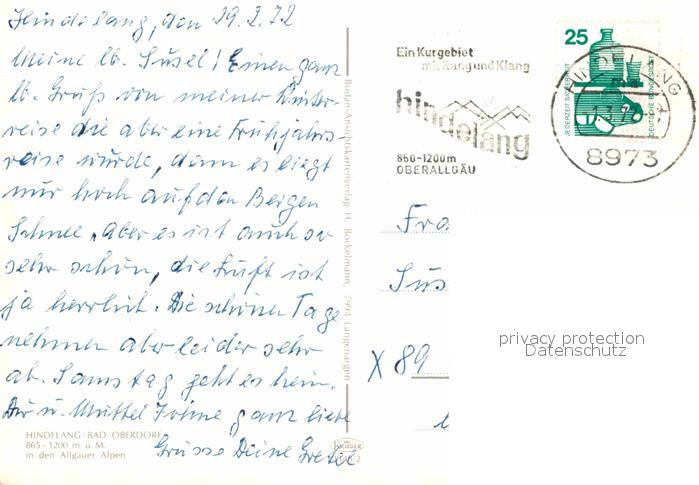 Hindelang, den 29.2.72
Meine lb. Susel! Einen ganz
lb. Gruß von meiner Winter-
reise die aber eine Frühjahrs-
reise wurde, denn es liegt
nur hoch auf den Bergen
Schnee. Aber es ist auch so
sehr schön, die Luft ist
ja herrlich. Die schönen Tage
nehmen aber leider sehr
ab. Samstag geht es heim.
Dir u. Muttel ganz liebe
Grüsse Deine Gretel
HINDELANG/BAD OBERDORF
865-1200 m ü. M.
in den Allgäuer Alpen
KRÜGER
Bodan-Ansichtskartenverlag H. Bockelmann, 7994 Langenargen
Ein Kurgebiet
mit Rang und Klang
hindelang
850-1200m
OBERALLGÄU
25
JEDERZEIT SICHERHEIT
DEUTSCHE BUNDESPOST
HINDELANG
8973
Fra
Sus
X 89
privacy protection
Datenschutz